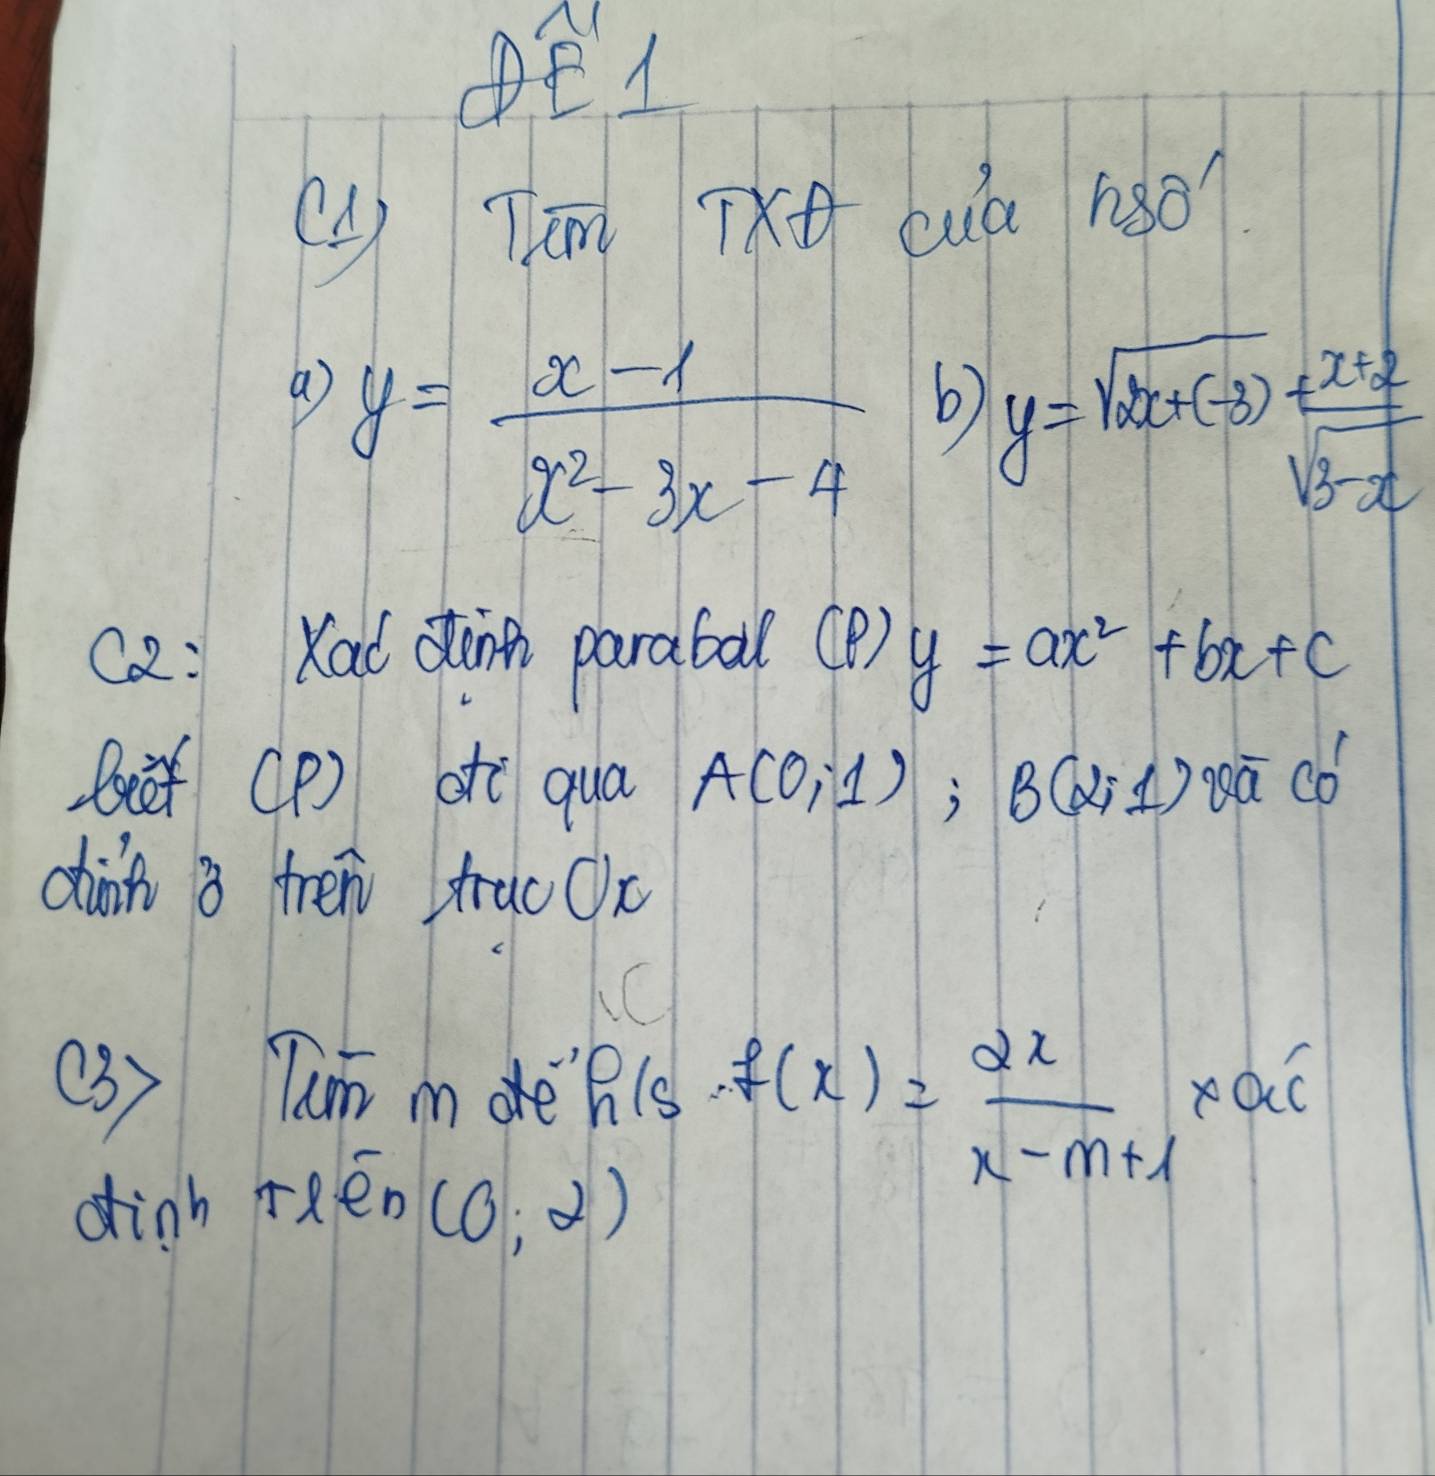 ĐỀ 1
C1) Tìm TXĐ của hsố
a) y = (x - 1)/(x² - 3x - 4) b) y = √(2x+(-3)) + (x+2)/√(3-x)
C2: Xác định parabal (P) y = ax² + bx + c
biết (P) đi qua A(0;1) ; B(2;1) và có
đỉnh ở trên trục Ox
C3> Tìm m để h/s f(x) = 2x/(x - m + 1) xác
định trên (0; 2)